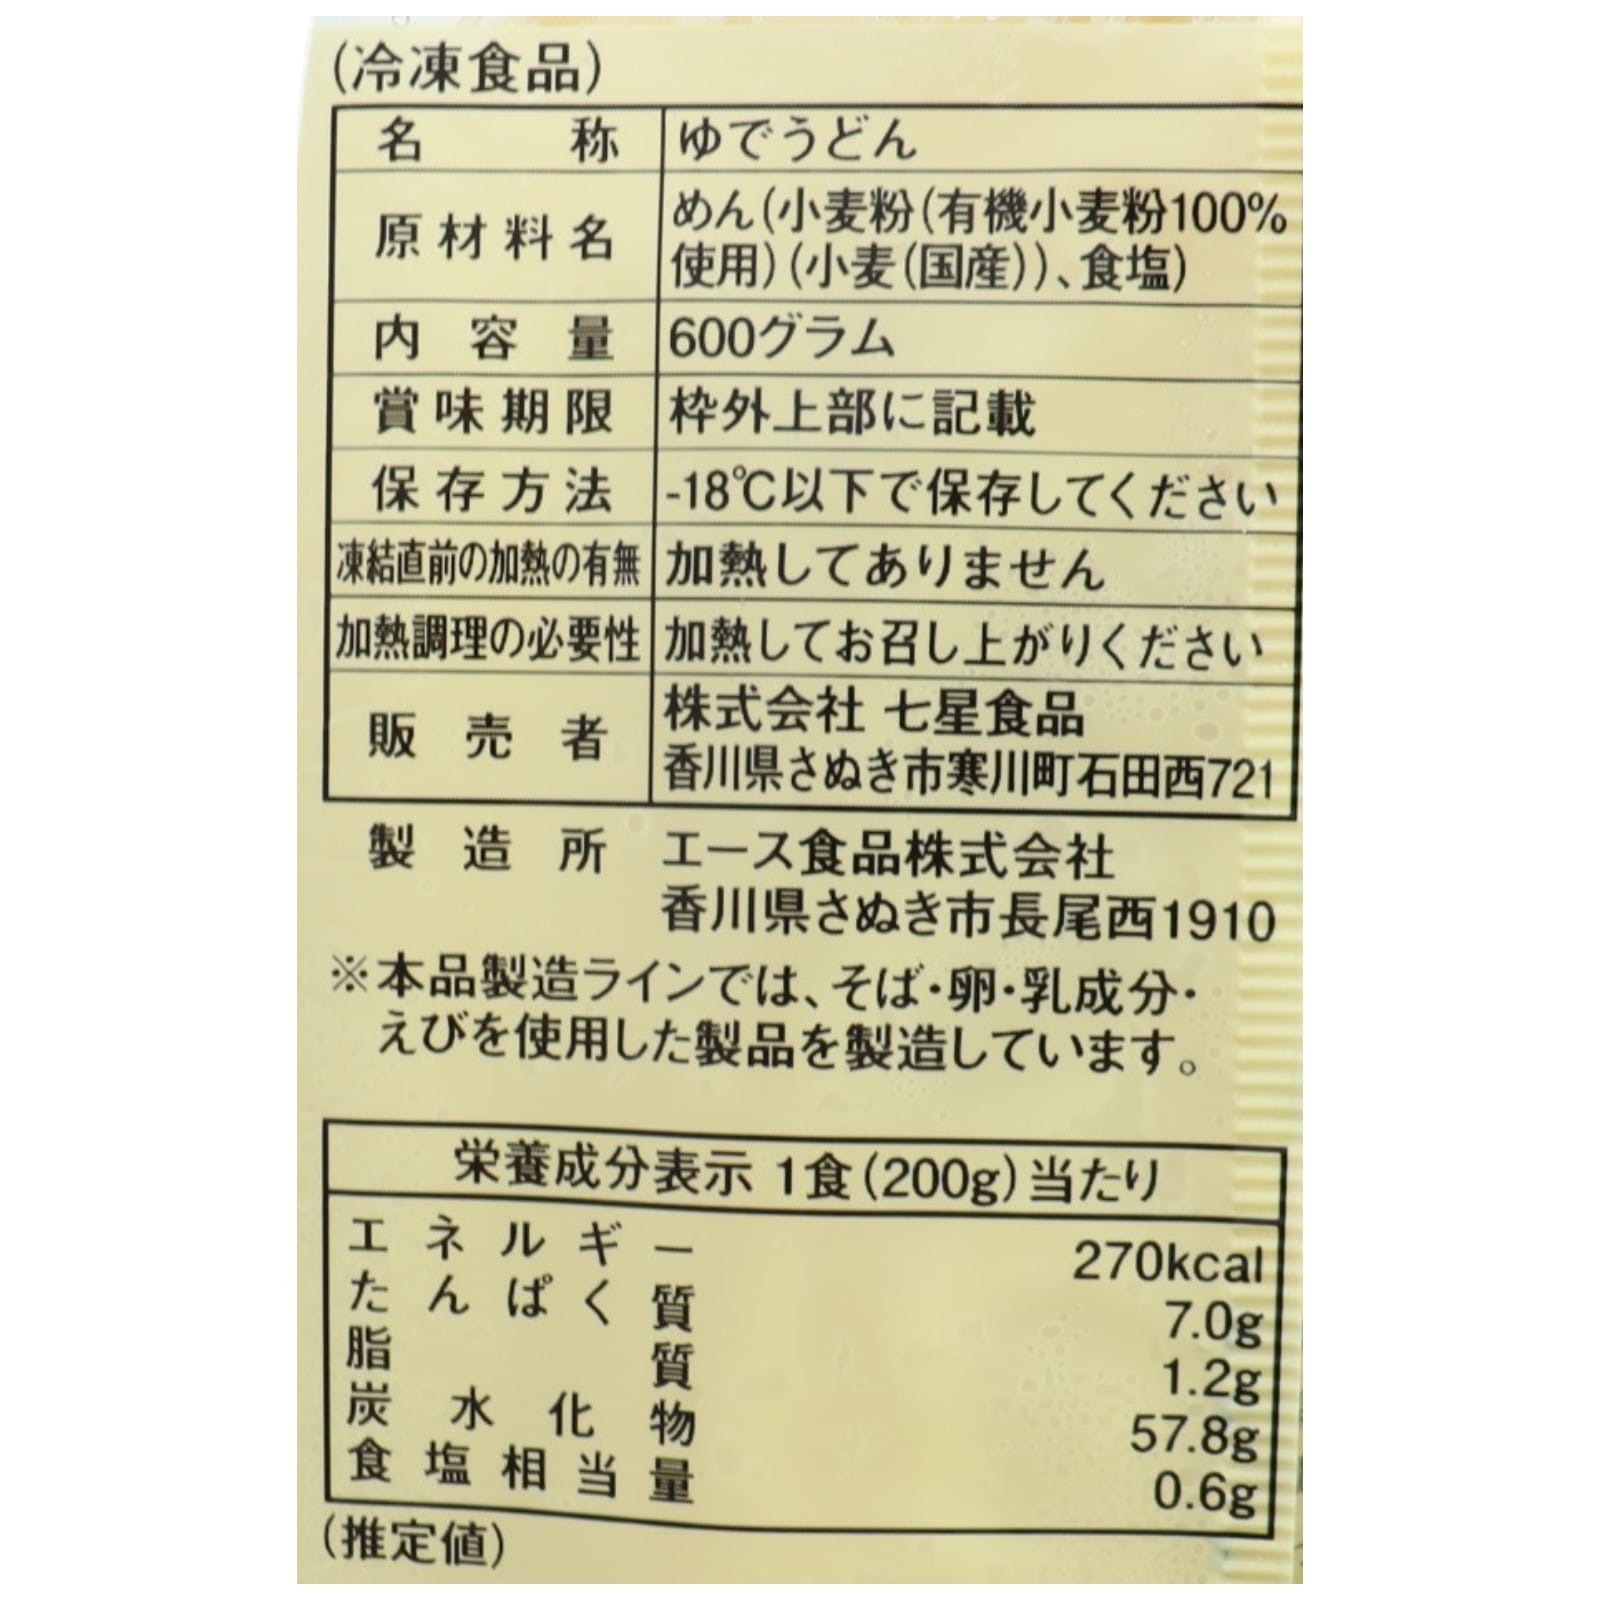 (冷凍食品)
名称 ゆでうどん
原材料名 めん(小麦粉(有機小麦粉100%
使用)(小麦(国産))、食塩)
内容量 600グラム
賞味期限 枠外上部に記載
保存方法 -18℃以下で保存してください
凍結直前の加熱の有無 加熱してありません
加熱調理の必要性 加熱してお召し上がりください
販売者 株式会社 七星食品
香川県さぬき市寒川町石田西721
製造所 エース食品株式会社
香川県さぬき市長尾西1910
※本品製造ラインでは、そば・卵・乳成分・
えびを使用した製品を製造しています。
栄養成分表示 1食(200g)当たり
エネルギー 270kcal
たんぱく質 7.0g
脂質 1.2g
炭水化物 57.8g
食塩相当量 0.6g
(推定値)